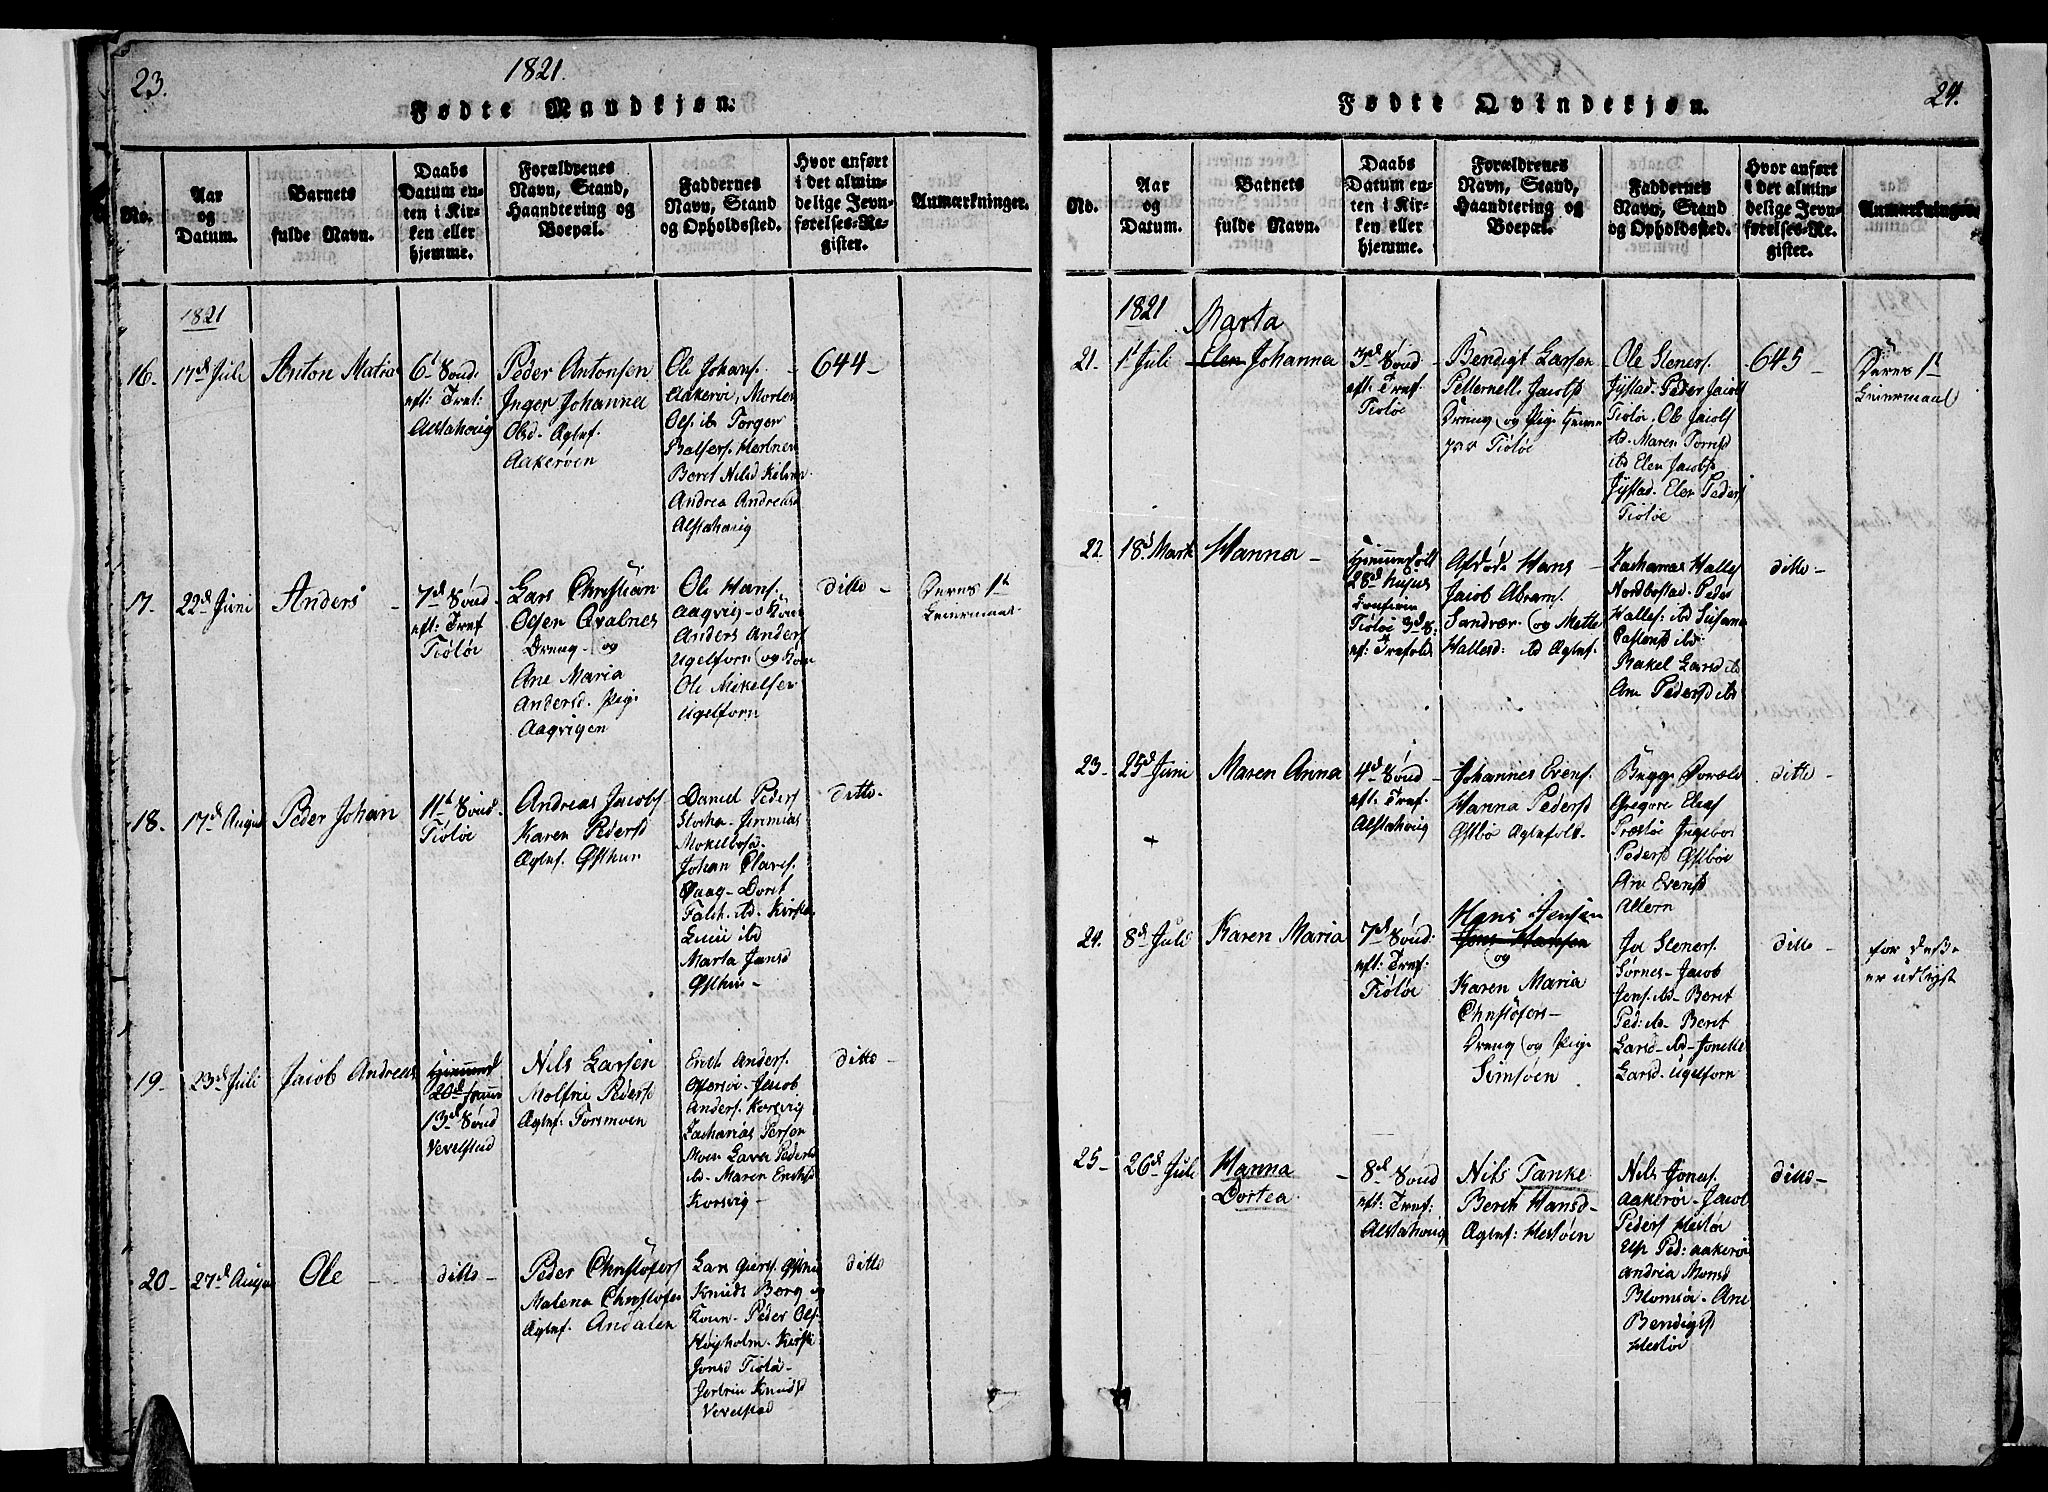 23.
1821.
Fødte Mandkjøn.
No.
Aar
og
Datum.
Barnets
fulde Navn.
Daabs
Datum en-
ten i Kir-
ken eller
hjemme.
Forældrenes
Navn, Stand,
Haandtering og
Boepæl.
Faddernes
Navn, Stand
og Opholdssted.
Hvor anført
i det almin-
delige Jevn-
førelses-Re-
gister.
Anmærkninger.
1821
16.
17d Juli
Anton Matias
6t Sønd.
eft: Tref:
Alstahoug
Peder Antonsen
Inger Johanna
Olsd. Ægtef.
Aakerøen
Ole Johans.
Aakerøi, Morten
Ols. ib Torger
Beret Nilsd
Andrea Andreasd
Alstahoug
644
17.
22d Juni
Anders
7d Sønd.
eft: Tref
Tiøtøe
Lars Christian
Olsen Qvalnes
Dreng og
Ane Maria
Andersd. Pige
Aagvigen
Ole Hans.
Aagvig og Kone
Anders Anders
Ugelforn og Kone
Ole Mikelsen
Ugelforn
ditto
Deres 1t
Leiermaal
18.
17d August
Peder Johan
11t Sønd.
Tiøtøe
Andreas Jacobs
Karen Pedersd
Ægtef. Østhun
Daniel Peders
Jeremias
Mokelbosd.
Johan Claves.
Vaag Dorit
Falch. ibd. Kirsten
ibd
Marta Jansd
Østhun
ditto
19
23d Juli
Jacob Andreas
Hjemmed
20d
13d Sønd
Vevelstad
Nils Larsen
Molfrie Pedersd
Ægtef: Forsmoen
Anders.
Jacob
Anders. Korsvig
Zacharias Persen
Moen Pedersd
ibd Maren Eriksd
Korsvig
ditto
20
27d August
Ole
ditto
Peder Christofers
Malena Christofer
Ægtef. Andalen
Lars
Knuds Borg og
Koun Peder Ols.
Høyholm Kirst.
Jonsd Tiøtø
Knudsd
Vevelstad
ditto
24.
Fødte Qvindekjøn.
No.
Aar
og
Datum.
Barnets
fulde Navn.
Daabs
Datum en-
ten i Kir-
ken eller
hjemme.
Forældrenes
Navn, Stand,
Haandtering og
Boepæl.
Faddernes
Navn, Stand
og Opholdssted.
Hvor anført
i det almin-
delige Jevn-
førelses-Re-
gister.
Anmærkninger.
1821
Marta
21.
1t Juli
Elen Johanna
3d Sønd
eft: Tref
Tiøtøe
Bendigt Larsen
Petternell: Jacobsd
Dreng og Pige
Tiøtøe
Ole Steners.
Jystad. Peder Jacobs
Tiøtøe, Ole Jacobs
ibd. Maren
ibd Elen Jacobsd
Jystad. Elen Peders
Tiøtøe
645
Deres 1t
Leiermaal
22.
18d Marts
Hanna
28d
Tiøtøe 3d S:
ef: Trefoldd
Afdøde Hans
Jacob Abrams.
Sandvær og Mette
Hallesd: ibd Ægtef.
Zacharias Halles
Nordbostad. Peder
Halles: ibd Susanna
ibd.
Rakel Larsd ib
Ane Pedersd ibd
ditto
23
25d Juni
Maren Anna
4d Sønd
eft: Tref.
Alstahoug
Johannes Evens.
Hanna Pedersd
Østbø Ægtefolk
Gregore Elias
Ingebor
Pedersd Østbøe
Ane Evensd
Altern
ditto
24.
8d Juli
Karen Maria
7d Sønd:
eft: Tref:
Tiøtøe
Hans Jensen
Jens Hansen
og
Karen Maria
Christofers
Dreng og Pige
Simsøen
Steners.
Sørnes Jacob
Jens. ibd Beret
Ped: ib Berit
Larsd ibd Jonelle
Larsd. Ugelforn
ditto
for desse
er udlyst
25
26d Juli
Hanna
Dortea
8d Sønd
eft: Tref:
Alstahoug
Nils Tanke
Berit Hansd
Ægtef: Hestøen
Nils Jonas.
Aakerøi Jacob
Peders Hestøe
Ped: Aakerøi
Andrea Monsd
Blomsøe Ane
Bendigtsd
Hestøe
ditto